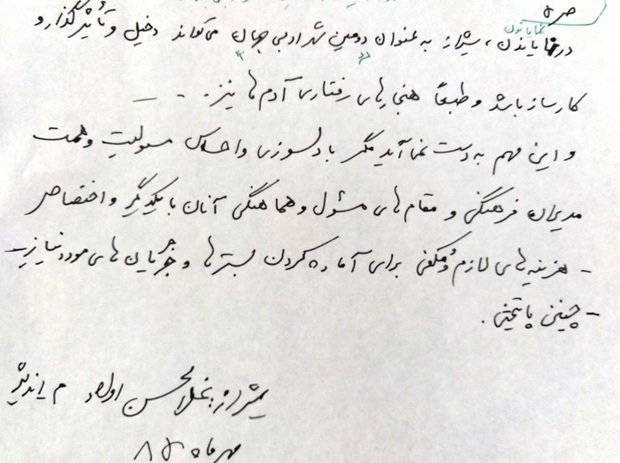 نمایاندن
در نمایاندن، شیراز به عنوان «دومین شهر ادبی جهان» می‌تواند دخیل و تأثیرگذار و
کارساز باشد و طبعاً هنجارهای رفتاری آدم‌ها نیز. . ـ ـ
و این مهم به دست نمی‌آید مگر با دلسوزی و احساس مسئولیت و همت
مدیران فرهنگی و مقام‌های مسئول و هماهنگی آنان با یکدیگر و اختصاص
- هزینه‌های لازم و مکفی برای آماده کردن بسترها و جریان‌های مورد نیاز -
- چنین پایتختی.
شیراز: غلامحسن اولاد م اندیش
مهرماه ۸۵